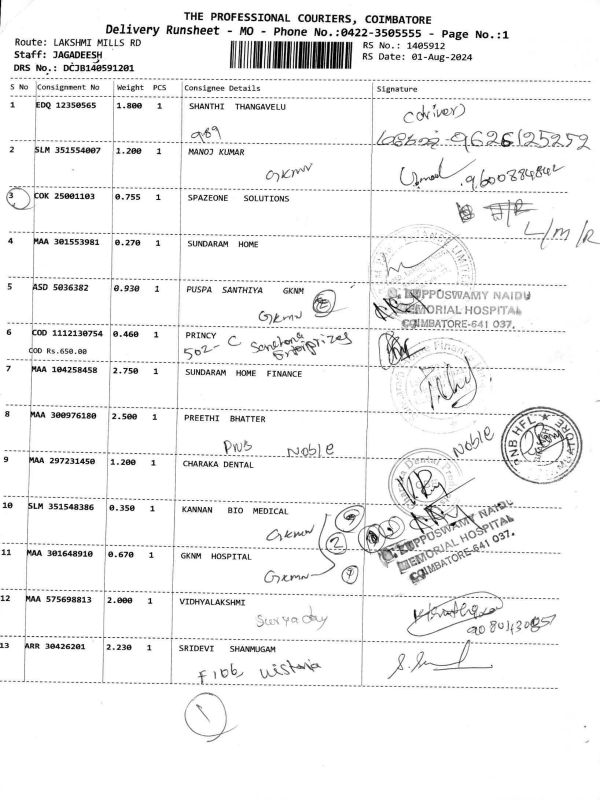 THE PROFESSIONAL COURIERS, COIMBATORE
Delivery Runsheet - MO - Phone No.:0422-3505555 - Page No.:1
Route: LAKSHMI MILLS RD
RS No.: 1405912
Staff: JAGADEESH
RS Date: 01-Aug-2024
DRS No.: DCJB140591201
S No Consignment No Weight PCS Consignee Details Signature
1 EDQ 12350565 1.800 1 SHANTHI THANGAVELU
(driver)
989
9626125252
2 SLM 351554007 1.200 1 MANOJ KUMAR
GKMN
9600884842
3 COK 25001103 0.755 1 SPAZEONE SOLUTIONS
L/M/R
4 MAA 301553981 0.270 1 SUNDARAM HOME
5 ASD 5036382 0.930 1 PUSPA SANTHIYA GKNM
GKMN 2
G. KUPPUSWAMY NAIDU
MEMORIAL HOSPITAL
COIMBATORE-641 037.
6 COD 1112130754 0.460 1 PRINCY
502- C Enterprizes
COD Rs.650.00
7 MAA 104258458 2.750 1 SUNDARAM HOME FINANCE
8 MAA 300976180 2.500 1 PREETHI BHATTER
PNB NOBLE
NOBLE
PNB HFL
9 MAA 297231450 1.200 1 CHARAKA DENTAL
10 SLM 351548386 0.350 1 KANNAN BIO MEDICAL
GKMN
2
G. KUPPUSWAMY NAIDU
MEMORIAL HOSPITAL
COIMBATORE-641 037.
11 MAA 301648910 0.670 1 GKNM HOSPITAL
GKMN
12 MAA 575698813 2.000 1 VIDHYALAKSHMI
Suryaday
13 ARR 30426201 2.230 1 SRIDEVI SHANMUGAM
F106 Wisteria
1